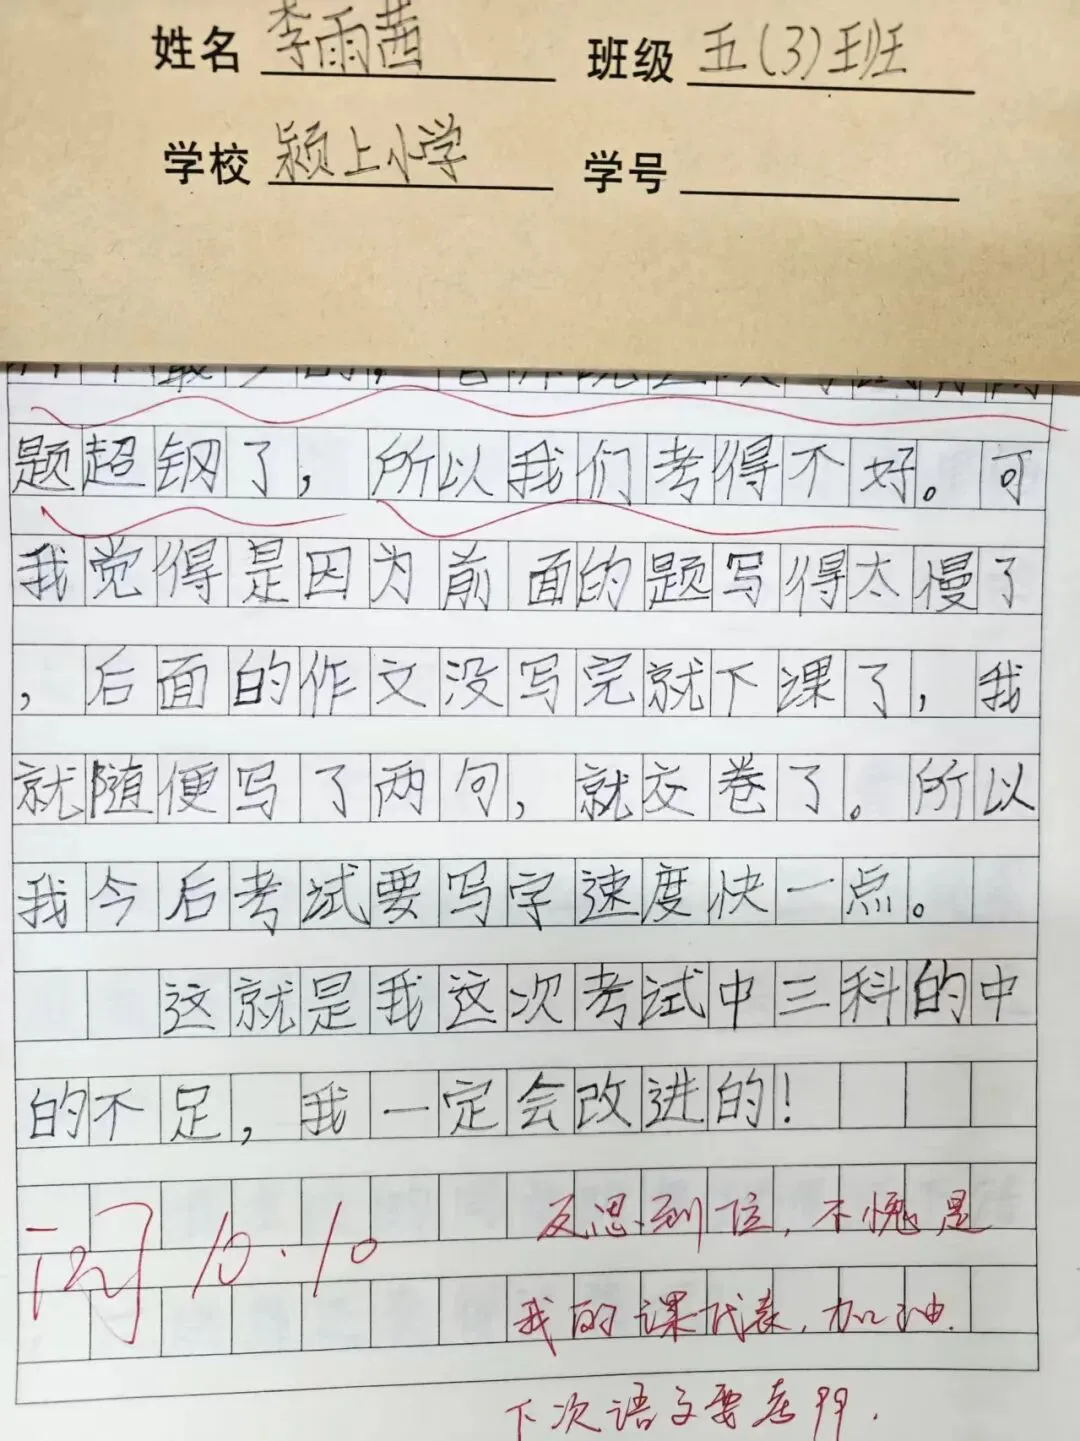 姓名 李雨茜 班级 五(3)班
学校 颍上小学 学号
题超钢了，所以我们考得不好。可
我觉得是因为前面的题写得太慢了
，后面的作文没写完就下课了，我
就随便写了两句，就交卷了。所以
我今后考试要写字速度快一点。
这就是我这次考试中三科的中
的不足，我一定会改进的！
阅 10.10
反思到位，不愧是
我的课代表，加油.
下次语文要考99.